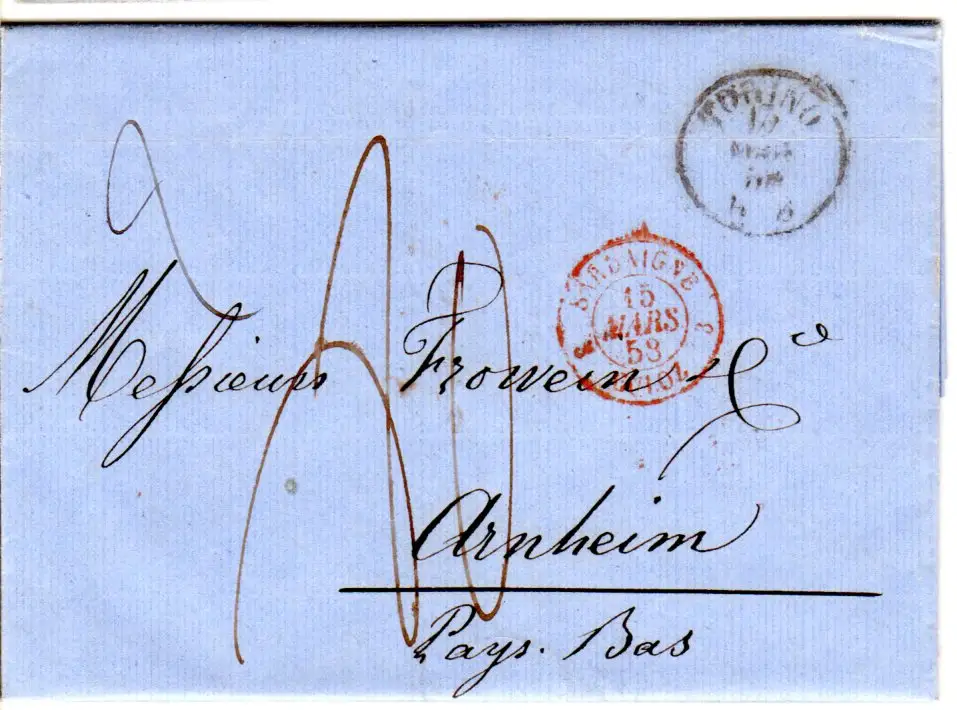 TORINO
SARDAIGNE
15
MARS
58
Messieurs Frowein & Cie
Arnheim
Pays. Bas